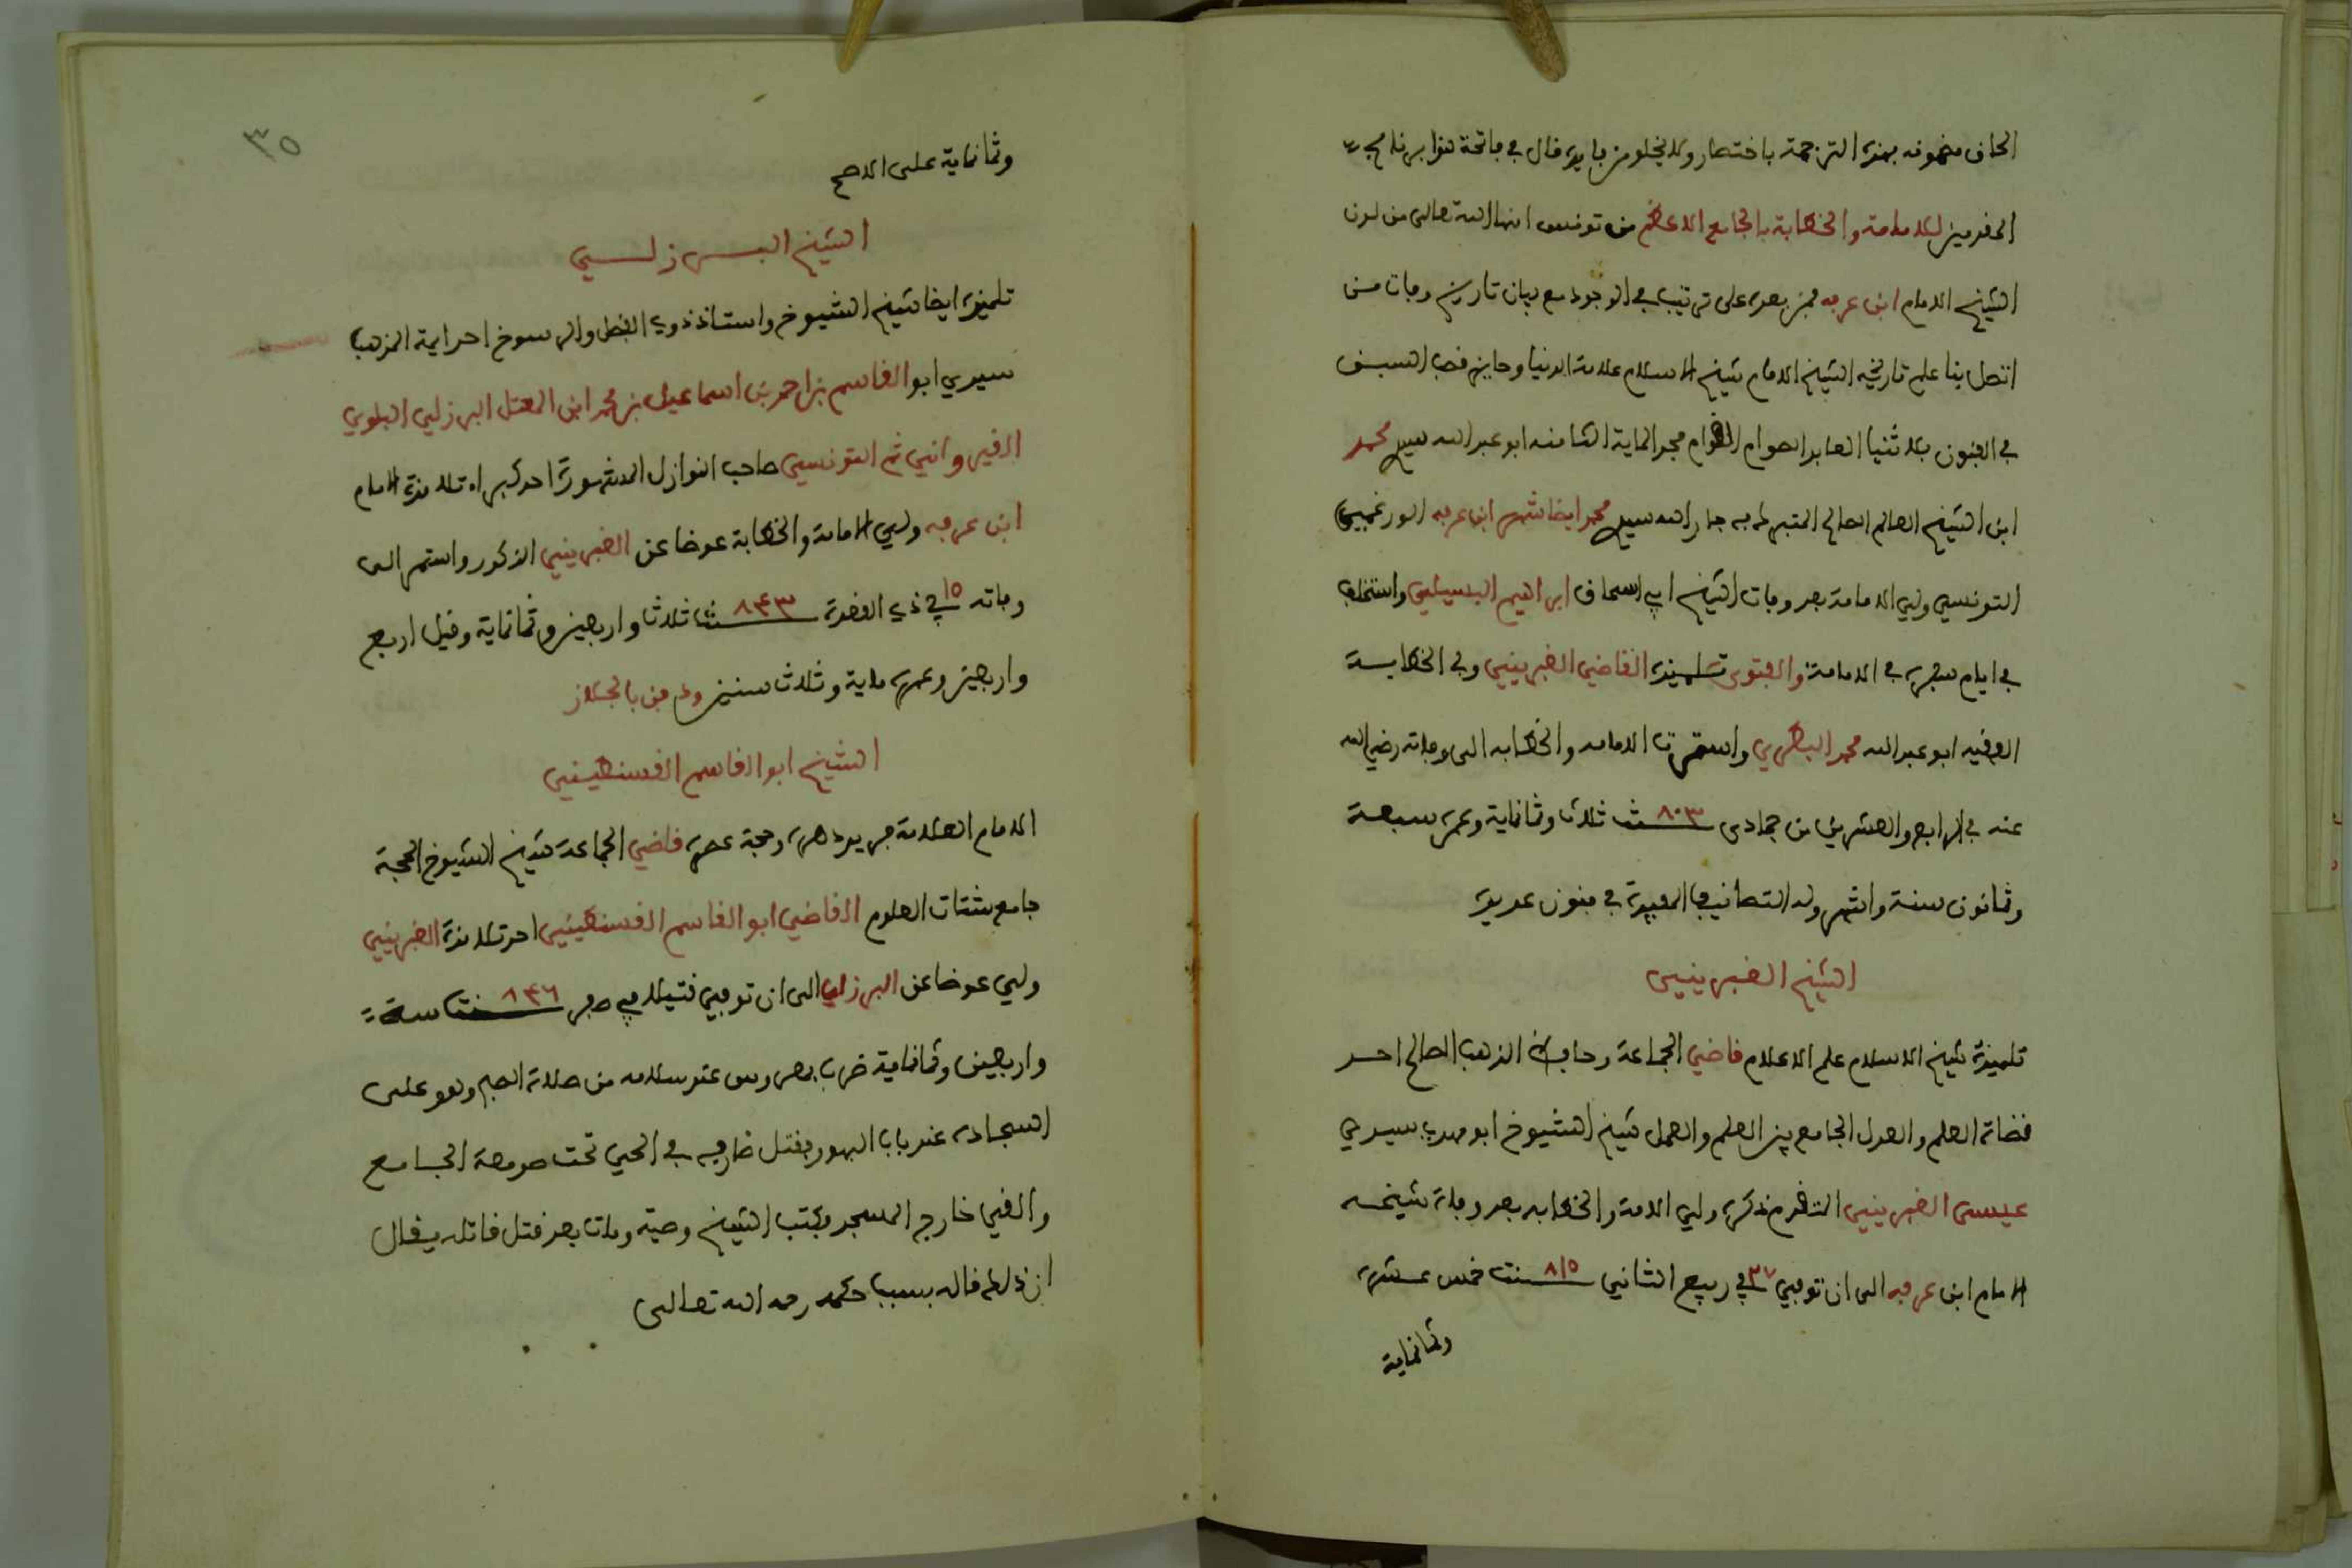 الحاق مضمونه بهذه الترجمة باختصار ولا يخلو من فايدة قال في فاتحة هذا برنامج
المقدمين للامامة والخطابة بالجامع الاعظم من تونس انها الله تعالى من لدن
الشيخ الامام ابن عرفه فمن بعده على ترتيب في الوجود مع بيان تاريخ وفات من
اتصل بنا علم تاريخه الشيخ الامام شيخ الاسلام علامة الدنيا وحايز قصب السبق
في الفنون بلا ثنيا العابد الصوام القوام مجدد الماية الثامنه ابو عبد الله سيدي محمد
ابن الشيخ العالم الصالح المتبرك به جار الله سيدي محمد ايضا شهر ابن عرفه الورغمي
التونسي ولي الامامة بعد وفات الشيخ ابي اسحاق ابراهيم البسيلي واستخلف
في ايام سفره في الامامة والفتوى تلميذه القاضي الغبريني وفي الخطابة
الفقيه ابو عبد الله محمد البطريني واستمرت الامامه والخطابه الى وفاته رضي الله
عنه في الرابع والعشرين من جمادى سنة ٨٠٣ ثلاث وثمانماية وعمره سبعة
وثمانون سنة واشهر وله التصانيف المفيدة في فنون عديدة
الشيخ الغبريني
تلميذه شيخ الاسلام علم الاعلام قاضي الجماعة وحافظ المذهب الصالح احد
قضاة العلم والعدل الجامع بين العلم والعمل شيخ الشيوخ ابو مهدي سيدي
عيسى الغبريني المتقدم ذكره ولي الامة والخطابه بعد وفاة شيخه
الامام ابن عرفه الى ان توفي في ٢٧ ربيع الثاني سنة ٨١٥ خمس عشرة
وثمانماية
٣٥
وثمانماية على الاصح
الشيخ البرزلي
تلميذه ايضا شيخ الشيوخ واستاذ ذوي الفضل والرسوخ احد ايمة المذهب
سيدي ابو القاسم بن احمد بن اسماعيل بن محمد ابن المعتل البرزلي البلوي
القيرواني ثم التونسي صاحب النوازل المشهورة احد كبراء تلامذة الامام
ابن عرفه ولي الامامة والخطابة عوضا عن الغبريني المذكور واستمر الى
وفاته في ١٥ ذي القعدة سنة ٨٤٣ ثلاث واربعين وثمانماية وقيل اربع
واربعين وعمره ماية وثلاث سنين ودفن بالجلاز
الشيخ ابو القاسم القسنطيني
الامام العلامة فريد دهره وحجة عصره قاضي الجماعة شيخ الشيوخ الحجة
جامع شتات العلوم القاضي ابو القاسم القسنطيني احد تلامذة الغبريني
ولي عوضا عن البرزلي الى ان توفي قتيلا في صفر سنة ٨٤٦ ستة
واربعين وثمانماية ضرب بمعروس عند سلامه من صلاة الصبح وهو على
السجاده عند باب البهور فقتل ضاربه في الحي تحت صومعة الجامع
والقي خارج المسجد وكتب الشيخ وصيه ومات بعد قتل قاتله يقال
ان ذلك فاله بسبب حكمه رحمه الله تعالى